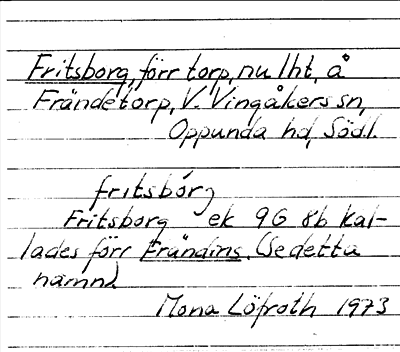 Fritsborg, förr torp, nu lht, å
Frändetorp, V. Vingåkers sn,
Oppunda hd, Södl.
frìtsbórg
Fritsborg ek 9G 8b kal-
lades förr Frändins. (Se detta
namn)
Mona Löfroth 1973